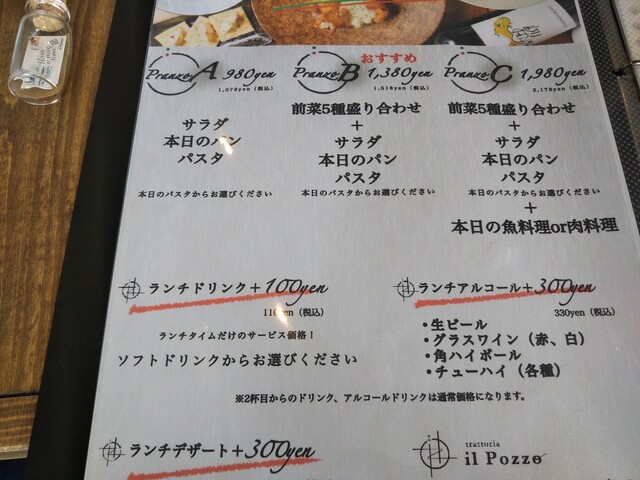 おすすめ
Pranzo A 980yen
1,078yen（税込）
サラダ
本日のパン
パスタ
本日のパスタからお選びください
Pranzo B 1,380yen
1,518yen（税込）
前菜5種盛り合わせ
+
サラダ
本日のパン
パスタ
本日のパスタからお選びください
Pranzo C 1,980yen
2,178yen（税込）
前菜5種盛り合わせ
+
サラダ
本日のパン
パスタ
本日のパスタからお選びください
+
本日の魚料理or肉料理
ランチドリンク+100yen
110yen（税込）
ランチタイムだけのサービス価格！
ソフトドリンクからお選びください
ランチアルコール+300yen
330yen（税込）
・生ビール
・グラスワイン（赤、白）
・角ハイボール
・チューハイ（各種）
※2杯目からのドリンク、アルコールドリンクは通常価格になります。
ランチデザート+300yen
trattoria
il Pozzo